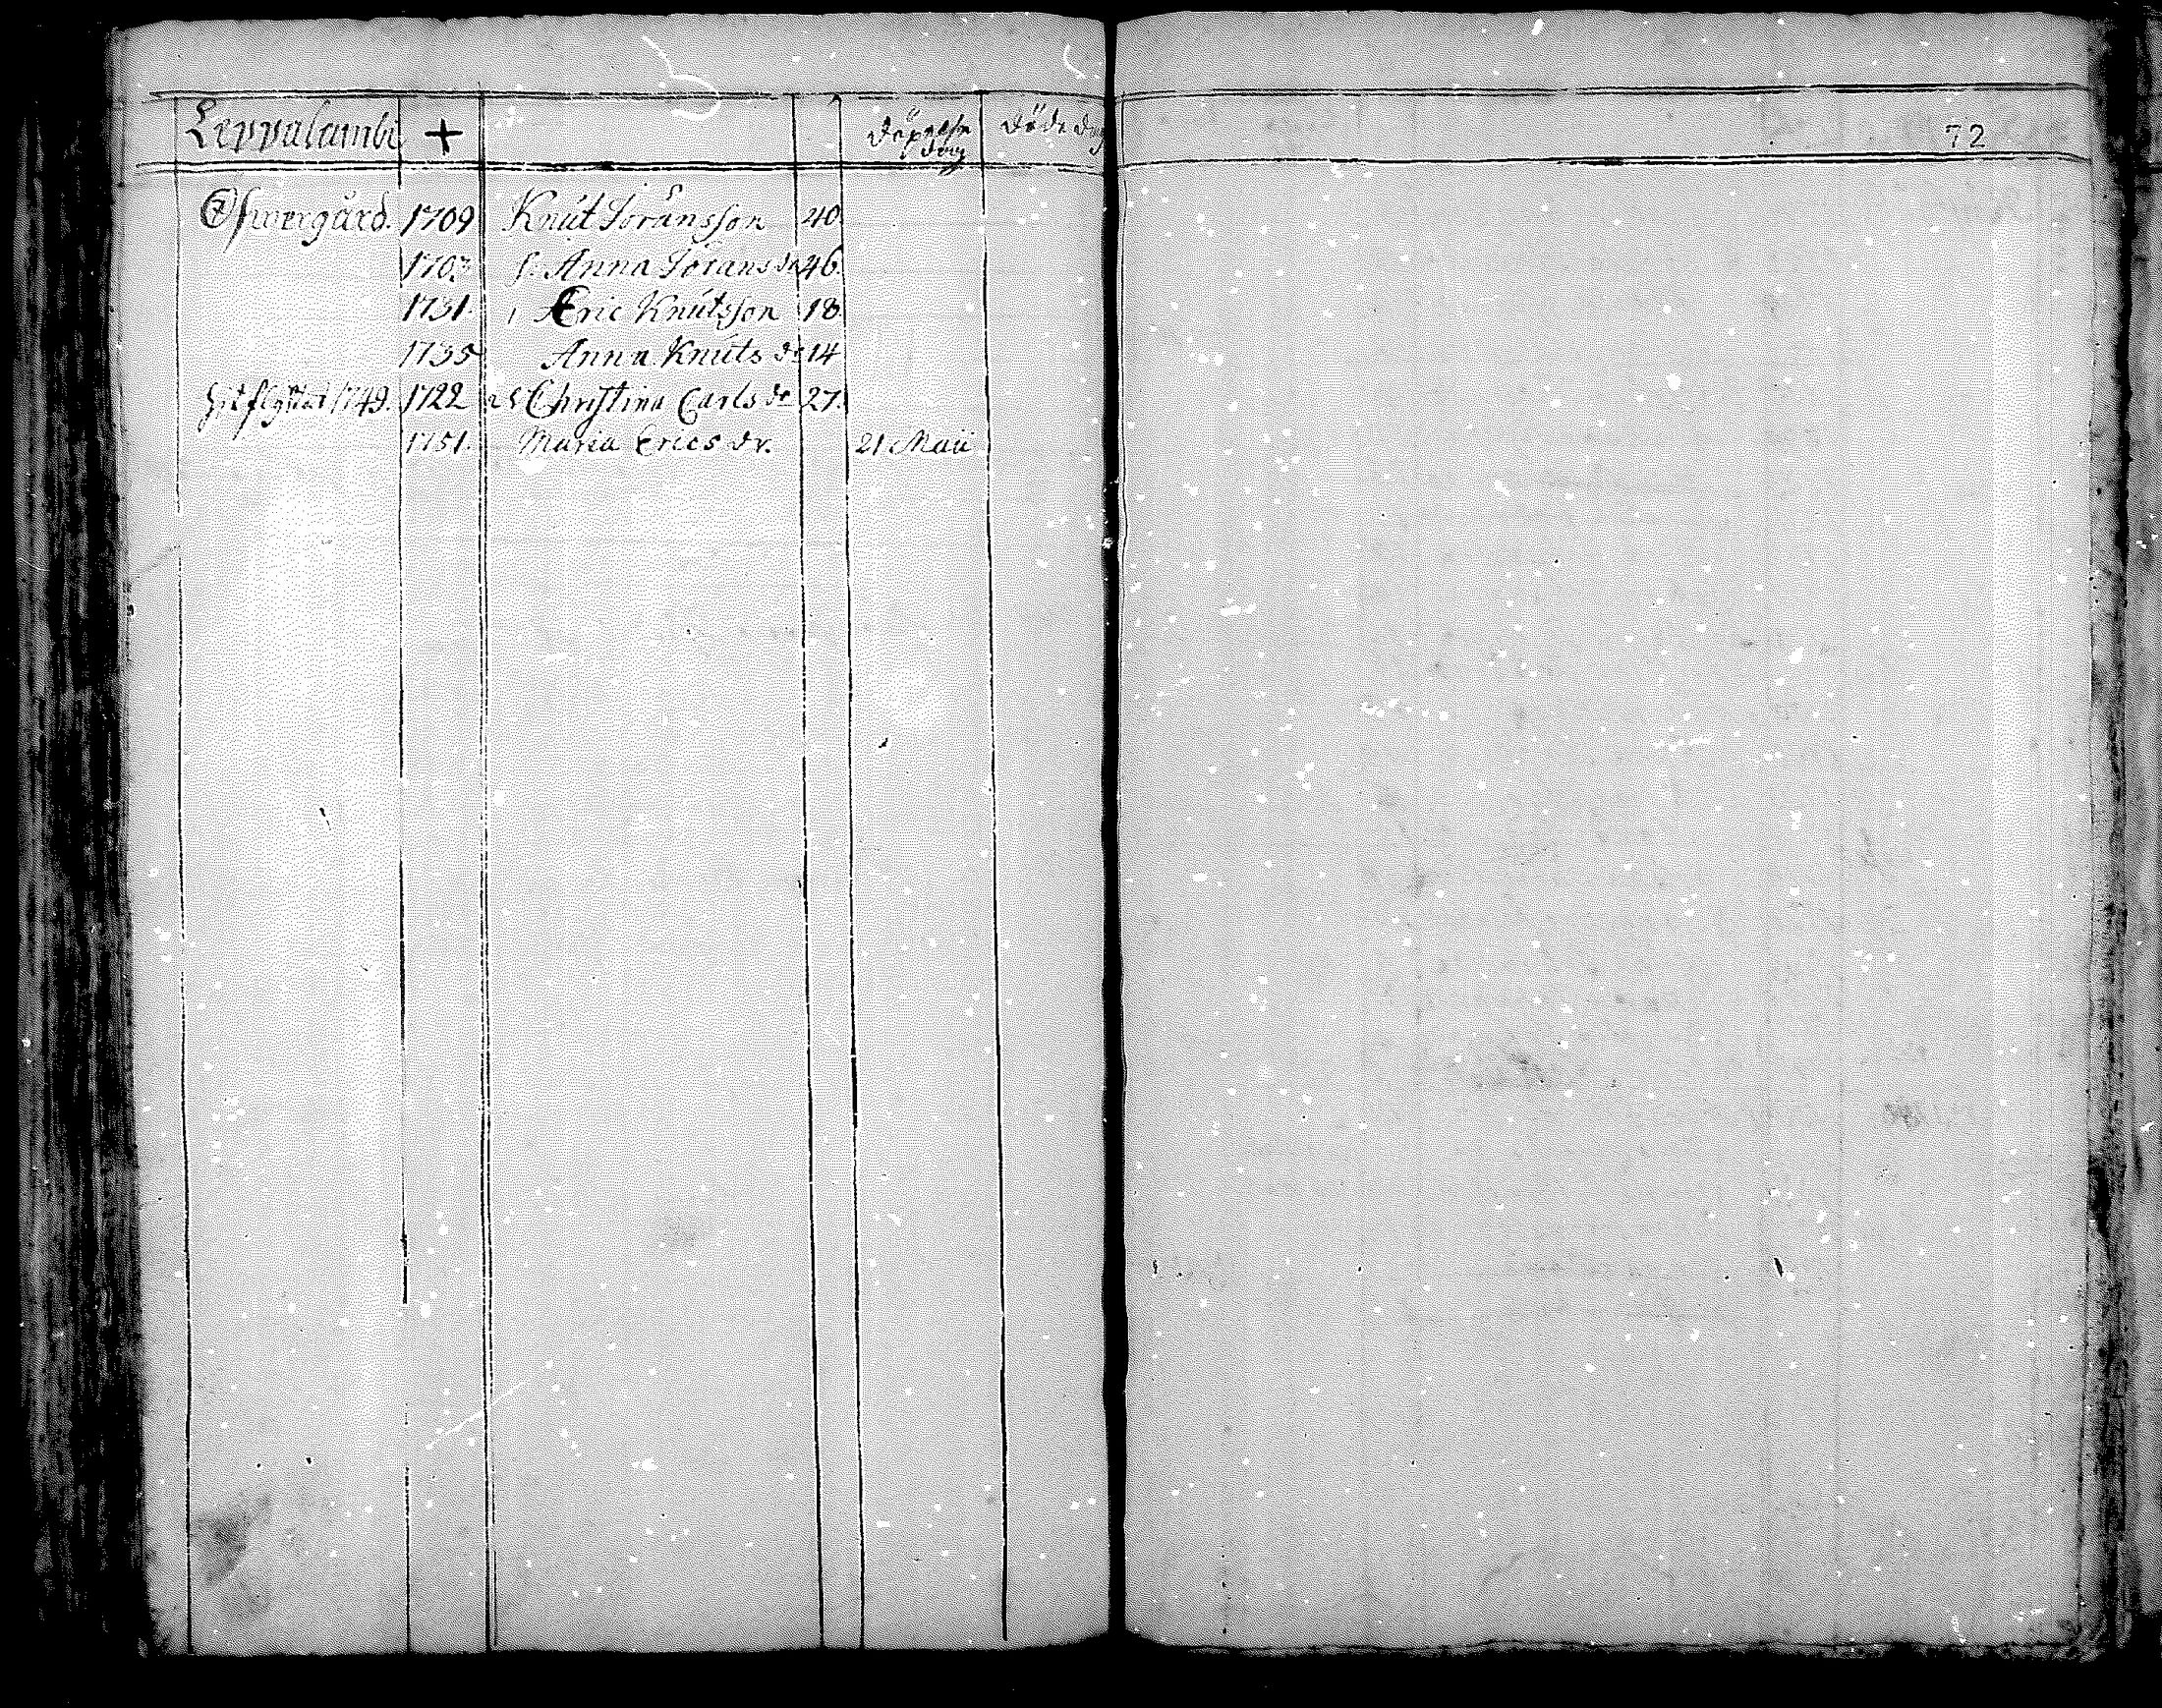 Leppalambi + döpelse dag döde dag 72
Öfwergård. 1709 Knut Göransson 40.
1703 h. Anna Görans dr 46.
1731. 1 Eric Knutsson 18.
1735 Anna Knuts dr 14
hit flyttat 1749. 1722 Christina Carls dr 27.
1751. Maria Erics dr. 21 Maii